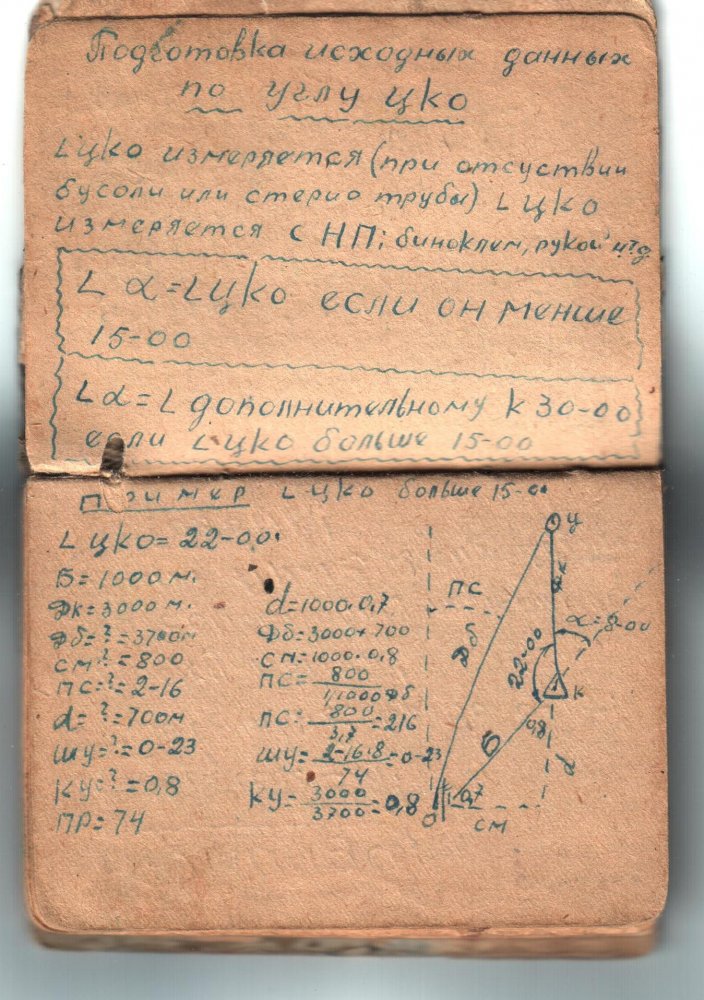 Подготовка исходных данных
по углу цко
∠ цко измеряется (при отсуствии
бусоли или стерио трубы) ∠ цко
измеряется с НП; биноклем, рукой и т.д.
∠ α = ∠ цко если он менше
15-00
∠ α = ∠ дополнительному к 30-00
если ∠ цко больше 15-00
пример ∠ цко больше 15-00
∠ цко = 22-00
Б = 1000 м.
Дк = 3000 м.
Дб = ? = 3700м
см = ? = 800
пс = ? = 2-16
d = ? = 700м
шу = ? = 0-23
ку = ? = 0,8
ПР = 74
d = 1000·0,7
Дб = 3000+700
см = 1000·0,8
пс = 800
1/1000 Дб
пс = 800 = 216
3,7
шу = 2-16·8 = 0-23
74
ку = 3000 = 0,8
3700
ц
Дк
пс
α = 8-00
Дб
22-00
к
0,8
Б
d
0,7
О
см